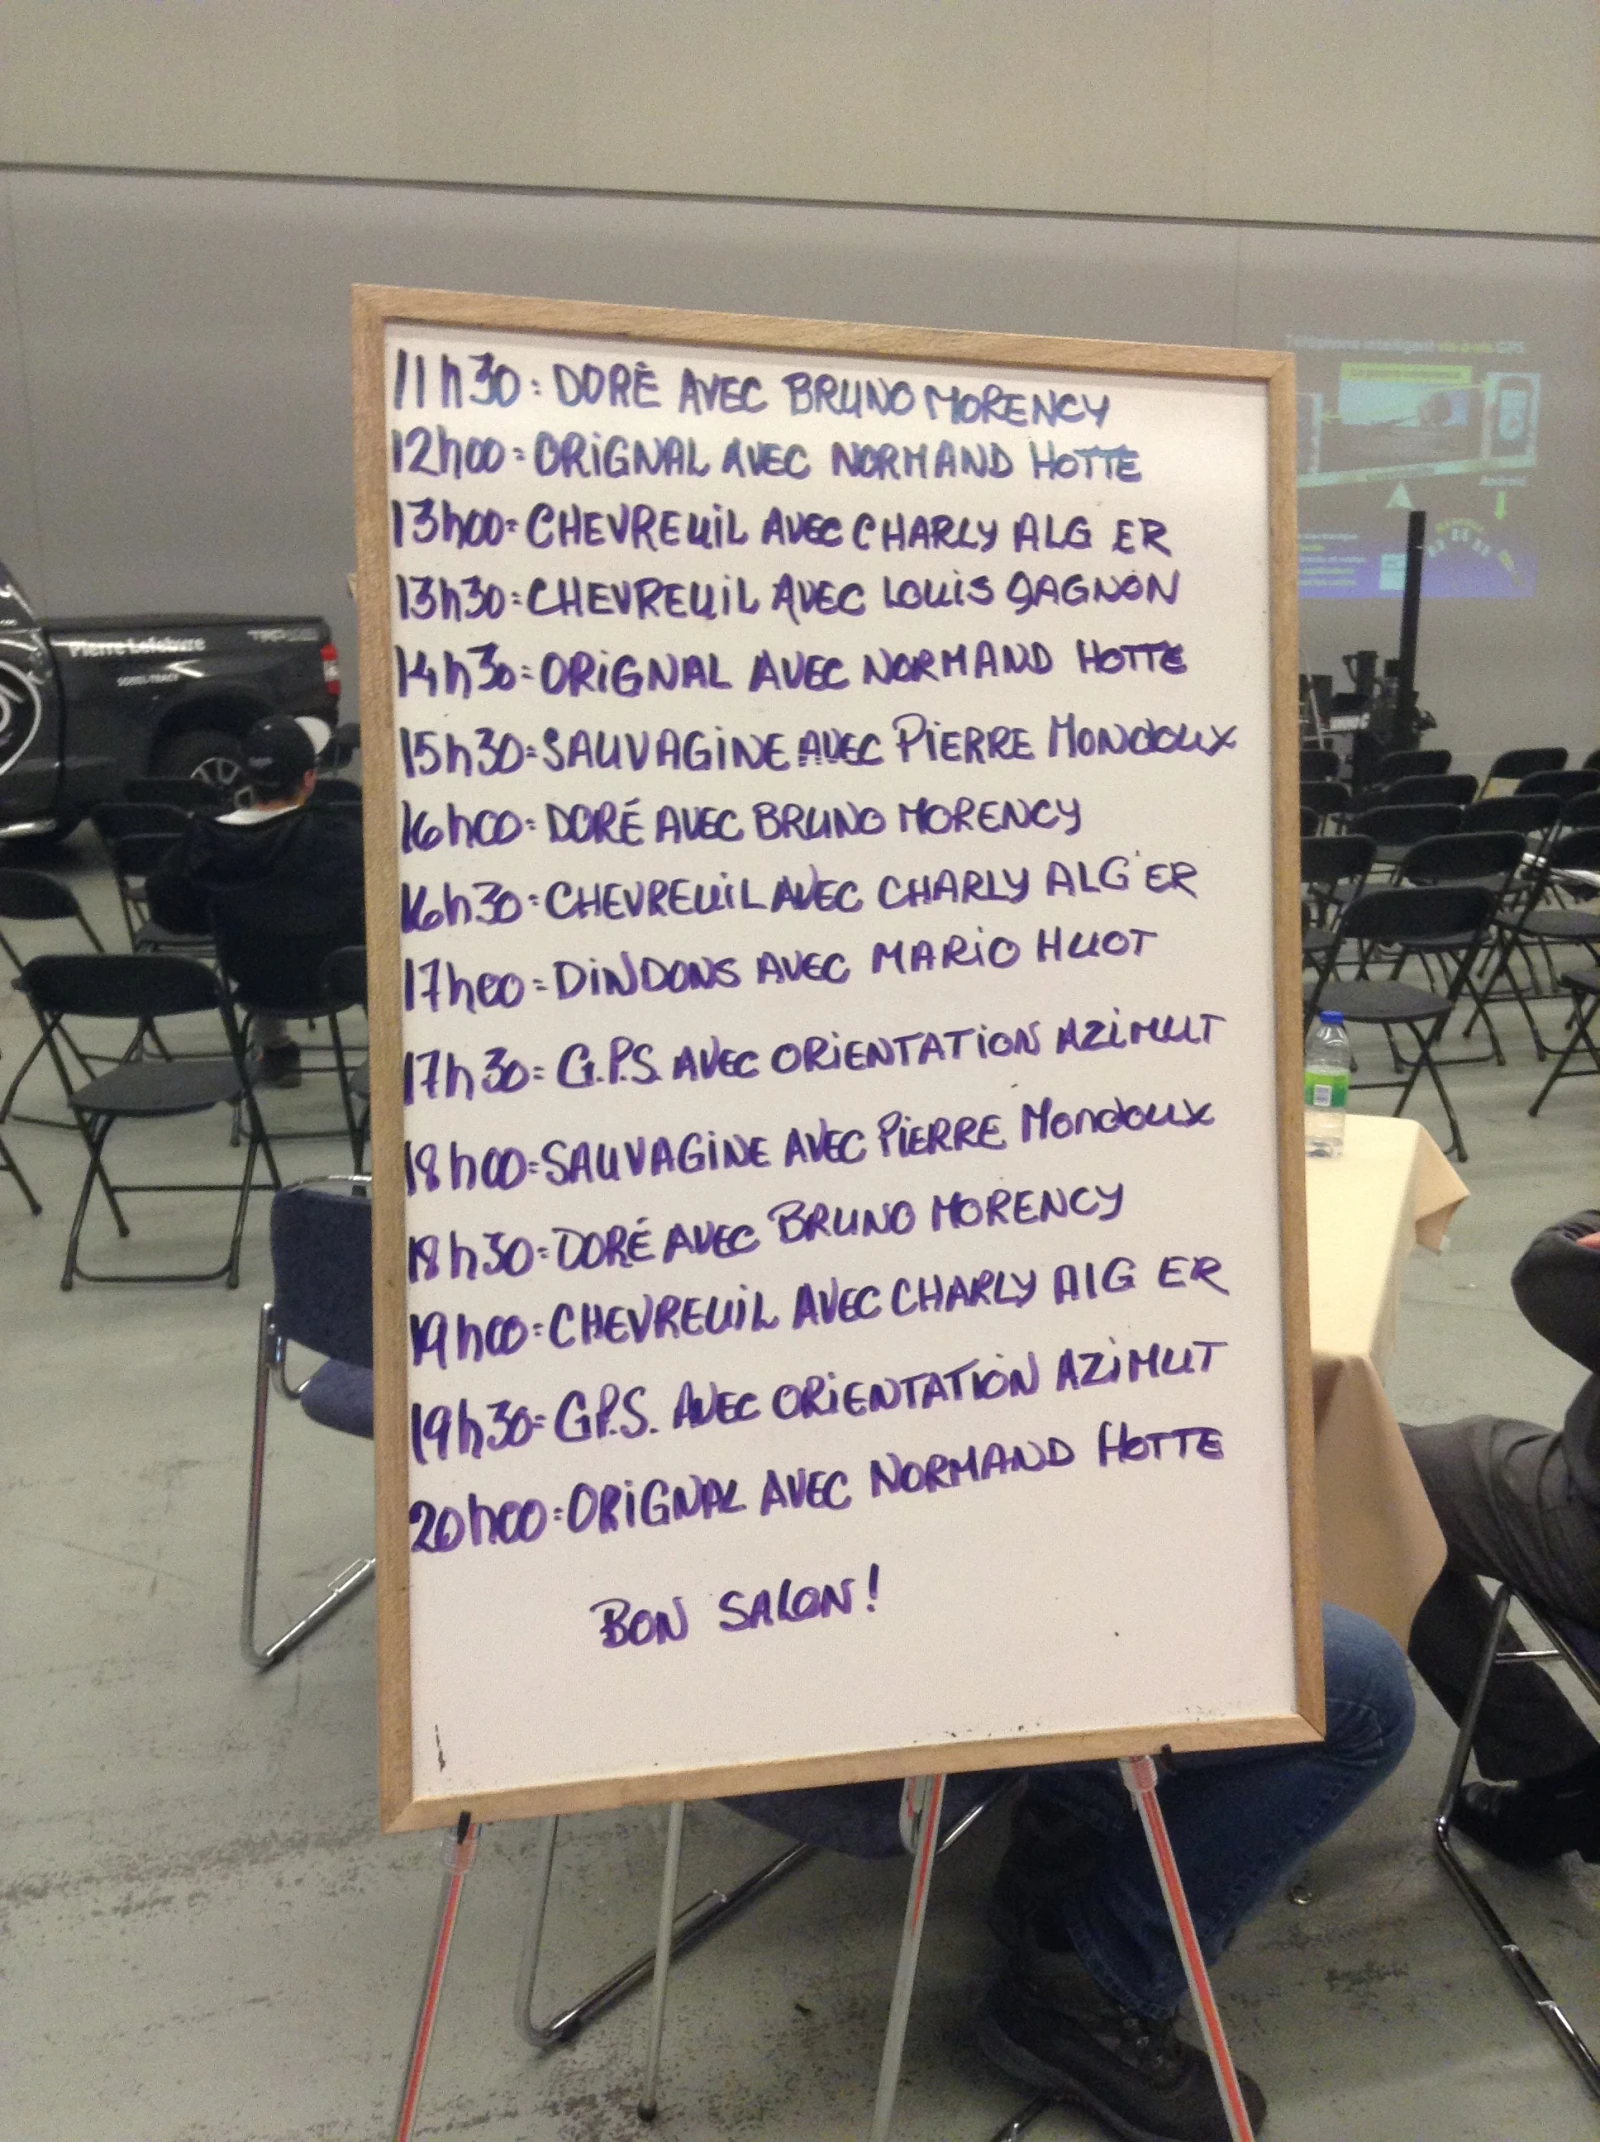 11h30: DORÉ AVEC BRUNO MORENCY
12h00: ORIGNAL AVEC NORMAND HOTTE
13h00: CHEVREUIL AVEC CHARLY ALG ER
13h30: CHEVREUIL AVEC LOUIS GAGNON
14h30: ORIGNAL AVEC NORMAND HOTTE
15h30: SAUVAGINE AVEC PIERRE MONDOUX
16h00: DORÉ AVEC BRUNO MORENCY
16h30: CHEVREUIL AVEC CHARLY ALG ER
17h00: DINDONS AVEC MARIO HUOT
17h30: G.P.S. AVEC ORIENTATION AZIMUT
18h00: SAUVAGINE AVEC PIERRE MONDOUX
18h30: DORÉ AVEC BRUNO MORENCY
19h00: CHEVREUIL AVEC CHARLY AlG ER
19h30: G.P.S. AVEC ORIENTATION AZIMUT
20h00: ORIGNAL AVEC NORMAND HOTTE
BON SALON!
Pierre Lefebvre
SOREL-TRACY
Téléphone intelligent vis-à-vis GPS
Android